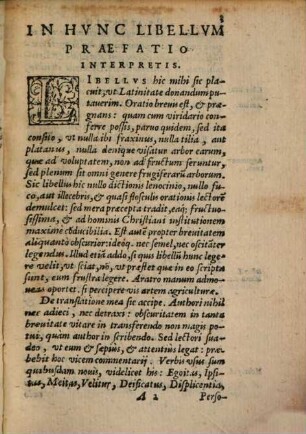 IN HVNC LIBELLVM
PRAEFATIO
INTERPRETIS.
LIBELLVS hic mihi sic pla-
cuit, vt Latinitate donandum pu-
tauerim. Oratio breuis est, & præ-
gnans: quam cum viridario con-
ferre possis, paruo quidem, sed ita
consito, vt nulla ibi fraxinus, nulla tilia, aut
platanus, nulla denique visatur arbor earum,
quæ ad voluptatem, non ad fructum seruntur,
sed plenum sit omni genere frugiferarũ arborum.
Sic libellus hic nullo dictionis lenocinio, nullo fu-
co, aut illecebris, & quasi flosculis orationis lectorẽ
demulcet: sed mera præcepta tradit, eaq; fructuo-
sissima, & ad hominis Christiani institutionem
maxime cõducibilia. Est autẽ propter breuitatem
aliquanto obscurior: ideoq. nec semel, nec oscitãter
legendus. Illud etiã addo, si quis libellũ hunc lege-
re velit, vt sciat, nõ, vt præstet quæ in eo scripta
sunt, eum frustra legere. Aratro manum admo-
ueas oportet, si percipere vis artem agriculturæ.
De translatione mea sic accipe. Authori nihil
nec adieci, nec detraxi: obscuritatem in tanta
breuitate vitare in transferendo non magis po-
tui, quàm author in scribendo. Sed lectori sua-
deo, vt eum & sæpius, & attentius legat: præ-
bebit hoc vicem commentarij. Verbis vsus sum
quibusdam nouis, videlicet his: Egoitas, Ipsi-
tas, Meitas, Velitur, Deificatus, Displicentia,
A 2 Perso-